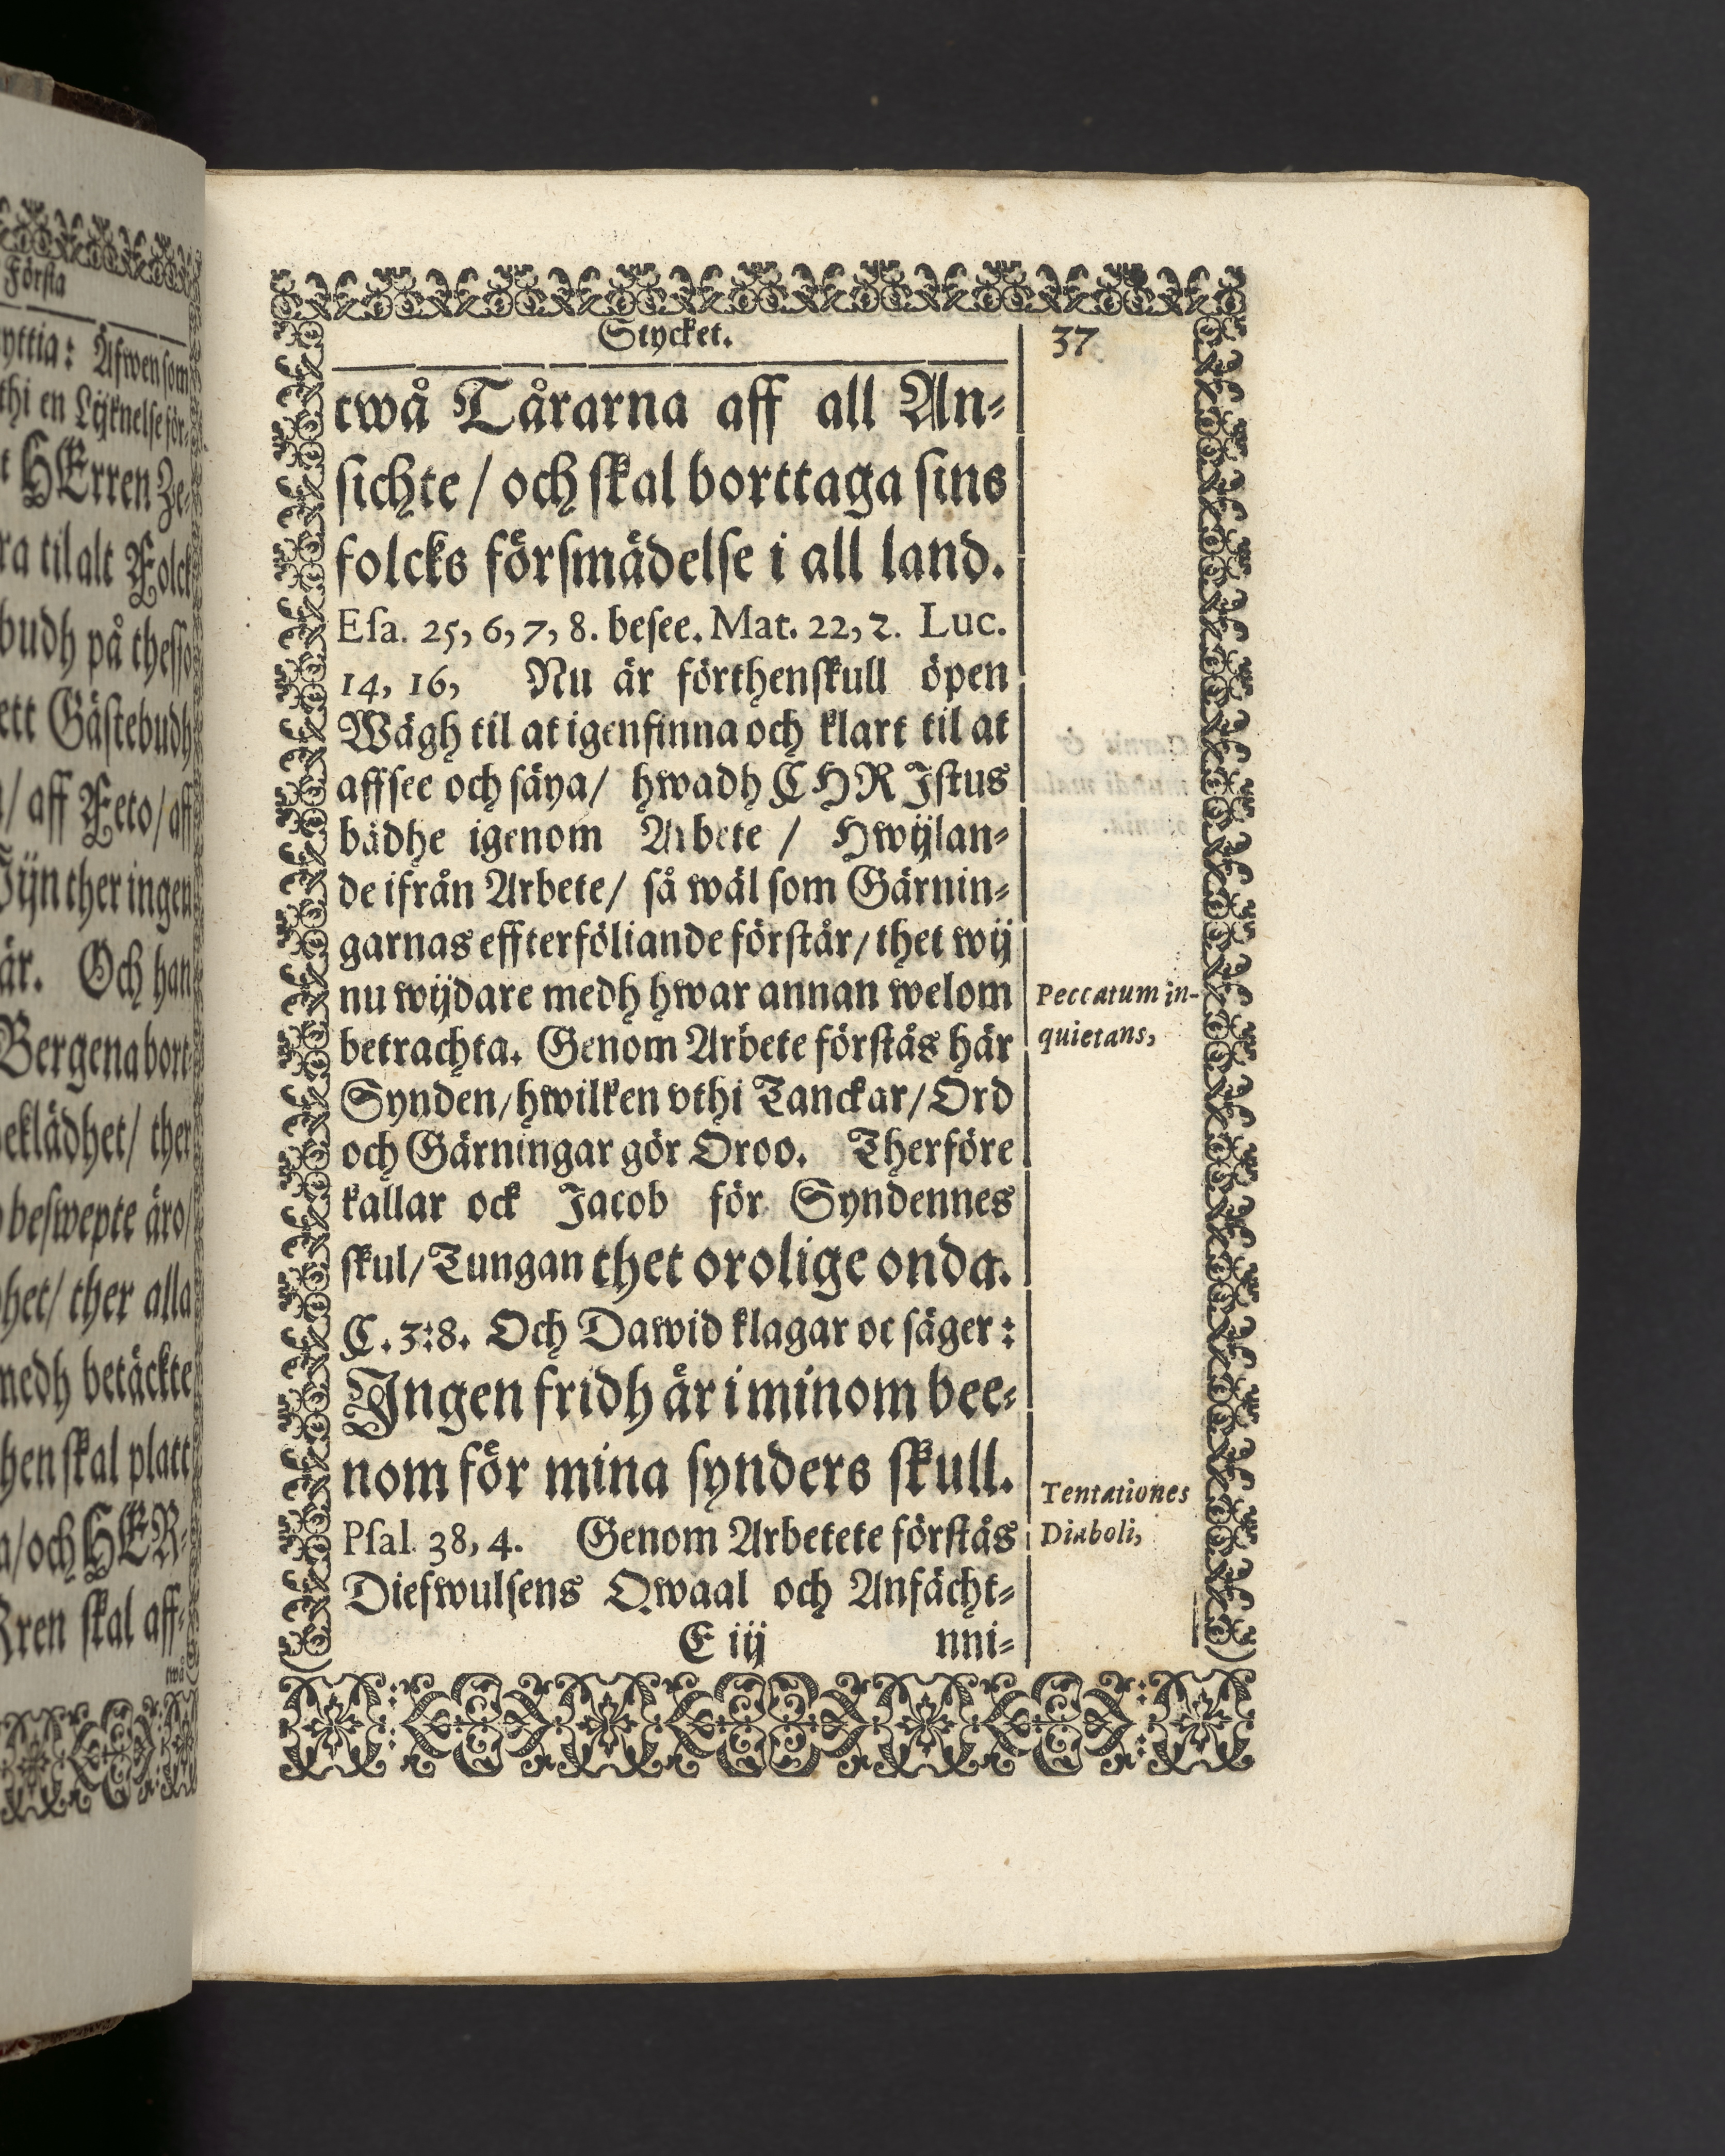 Första
yttia: Äfwen som
thi en Lijknelse för-
t HErren Ze-
ra til alt Folck
budh på thesso
ett Gästebudh
/ aff Feto / aff
Wijn ther ingen
är. Och han
Bergena bort
beklädhet / ther
beswepte äro /
het / ther alla
medh betäckte
hen skal platt
a / och HER-
Rren skal aff-
twå
Stycket.
37
twå Tårarna aff all An-
sichte / och skal borttaga sins
folcks försmädelse i all land.
Esa. 25, 6, 7, 8. besee. Mat. 22, 2. Luc.
14, 16, Nu är förthenskull öpen
Wägh til at igenfinna och klart til at
affsee och säya / hwadh CHRIstus
bådhe igenom Arbete / Hwijlan-
de ifrån Arbete / så wäl som Gärnin-
garnas effterföliande förstår / thet wij
nu wijdare medh hwar annan welom
betrachta. Genom Arbete förstås här
Synden / hwilken vthi Tanckar / Ord
och Gärningar gör Oroo. Therföre
kallar ock Jacob för Syndennes
skul / Tungan thet orolige onda.
C. 3:8. Och Dawid klagar oc säger:
Ingen fridh är i minom bee-
nom för mina synders skull.
Psal. 38, 4. Genom Arbetete förstås
Diefwulsens Qwaal och Anfächt-
E iij nni-
Peccatum in-
quietans,
Tentationes
Diaboli,